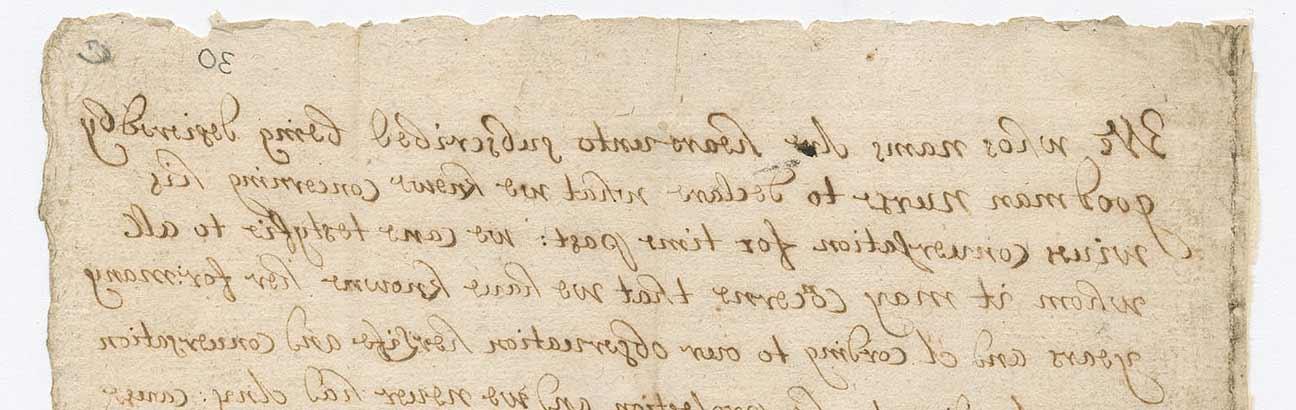 30
We whos nams Are heareunto subscribed being desiered by
goodman Nurse to declare what we knowe concerning his
wiues conuersation for time past: we cane testyfie to all
whom it may cocerne that we haue knowne her for: many
years and Acording to our obseruation her Life and conuersation
and we neuer had Any: cause